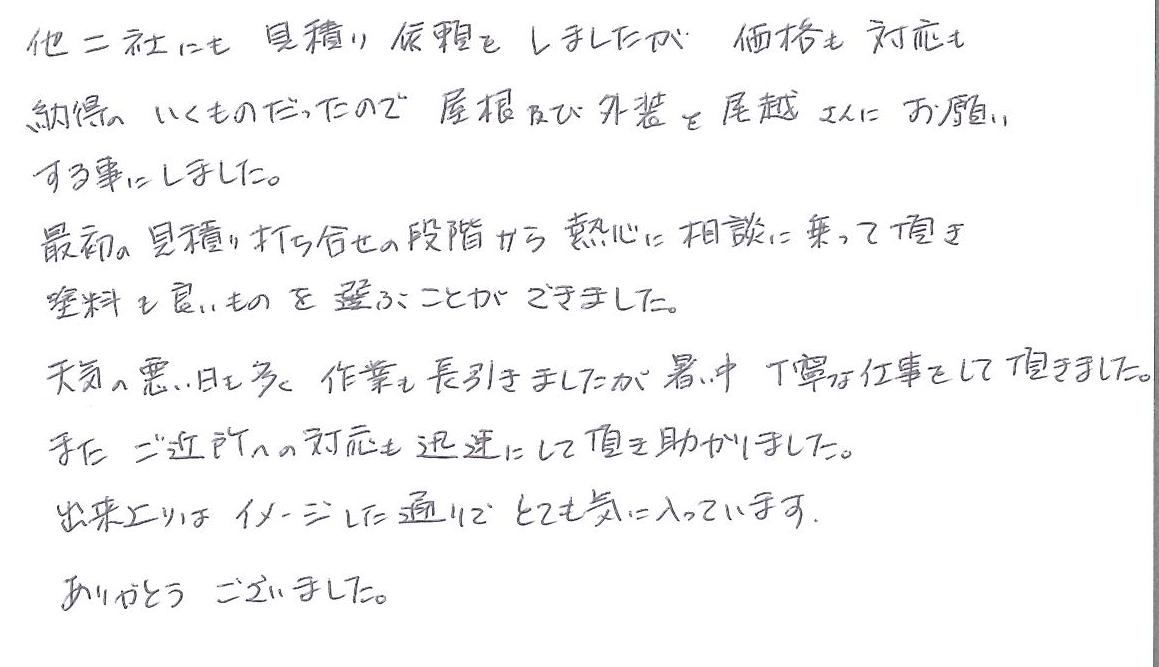 他二社にも見積り依頼をしましたが価格も対応も
納得のいくものだったので屋根及び外装を尾越さんにお願い
する事にしました。
最初の見積り打ち合せの段階から熱心に相談に乗って頂き
塗料も良いものを選ぶことができました。
天気の悪い日も多く作業も長引きましたが暑い中丁寧な仕事をして頂きました。
またご近所への対応も迅速にして頂き助かりました。
出来上りはイメージした通りでとても気に入っています.
ありがとうございました。